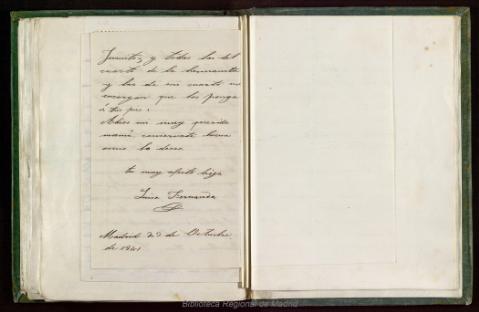 Juanita, y todas las del
cuarto de la hermanita
y las de mi cuarto me
encargan que las ponga
á tus pies.
Adios mi muy querida
mamá conservate buena
como lo desea
tu muy afecta hija
Luisa Fernanda
Madrid 23 de Octubre
de 1841
Biblioteca Regional de Madrid